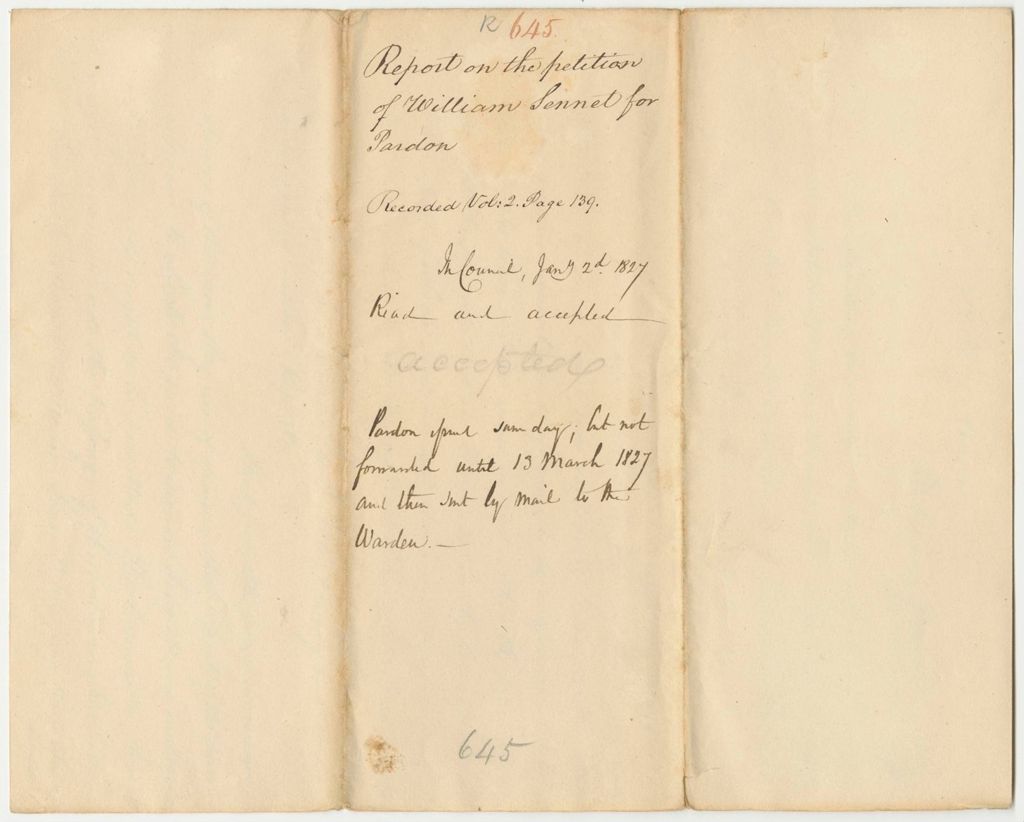 R 645.
Report on the petition
of William Sennet for
Pardon
Recorded Vol: 2. Page 139.
In Council, Jany 2d. 1827
Read and accepted
accepted
Pardon issued same day; but not
forwarded until 13 March 1827
and then sent by mail to the
Warden. —
645